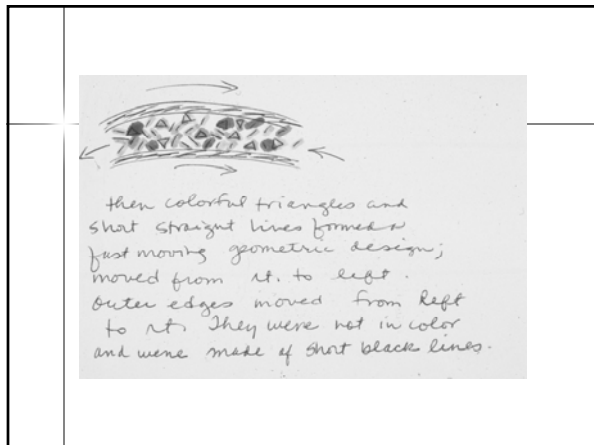 then colorful triangles and
short straight lines formed a
fast moving geometric design;
moved from rt. to left.
outer edges moved from left
to rt. They were not in color
and were made of short black lines.